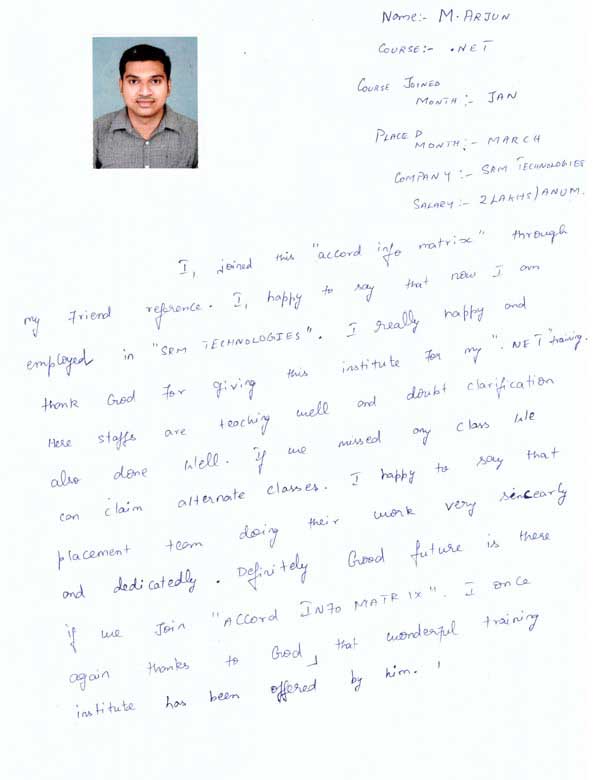 Name:- M. ARJUN
COURSE:- .NET
COURSE JOINED
MONTH:- JAN
PLACED
MONTH:- MARCH
COMPANY:- SRM TECHNOLOGIES
SALARY:- 2 LAKHS/ANUM.
I, joined this "accord info matrix" through
my Friend reference. I, happy to say that now I am
employed in "SRM TECHNOLOGIES". I really happy and
thank God for giving this institute for my ".NET" training.
Here staffs are teaching well and doubt clarification
also done well. if we missed any class we
can claim alternate classes. I happy to say that
placement team doing their work very sincearly
and dedicatedly. Definitely Good future is there
if we Join "ACCORD INFO MATRIX". I once
again thanks to God, that wonderful training
institute has been offered by him. !